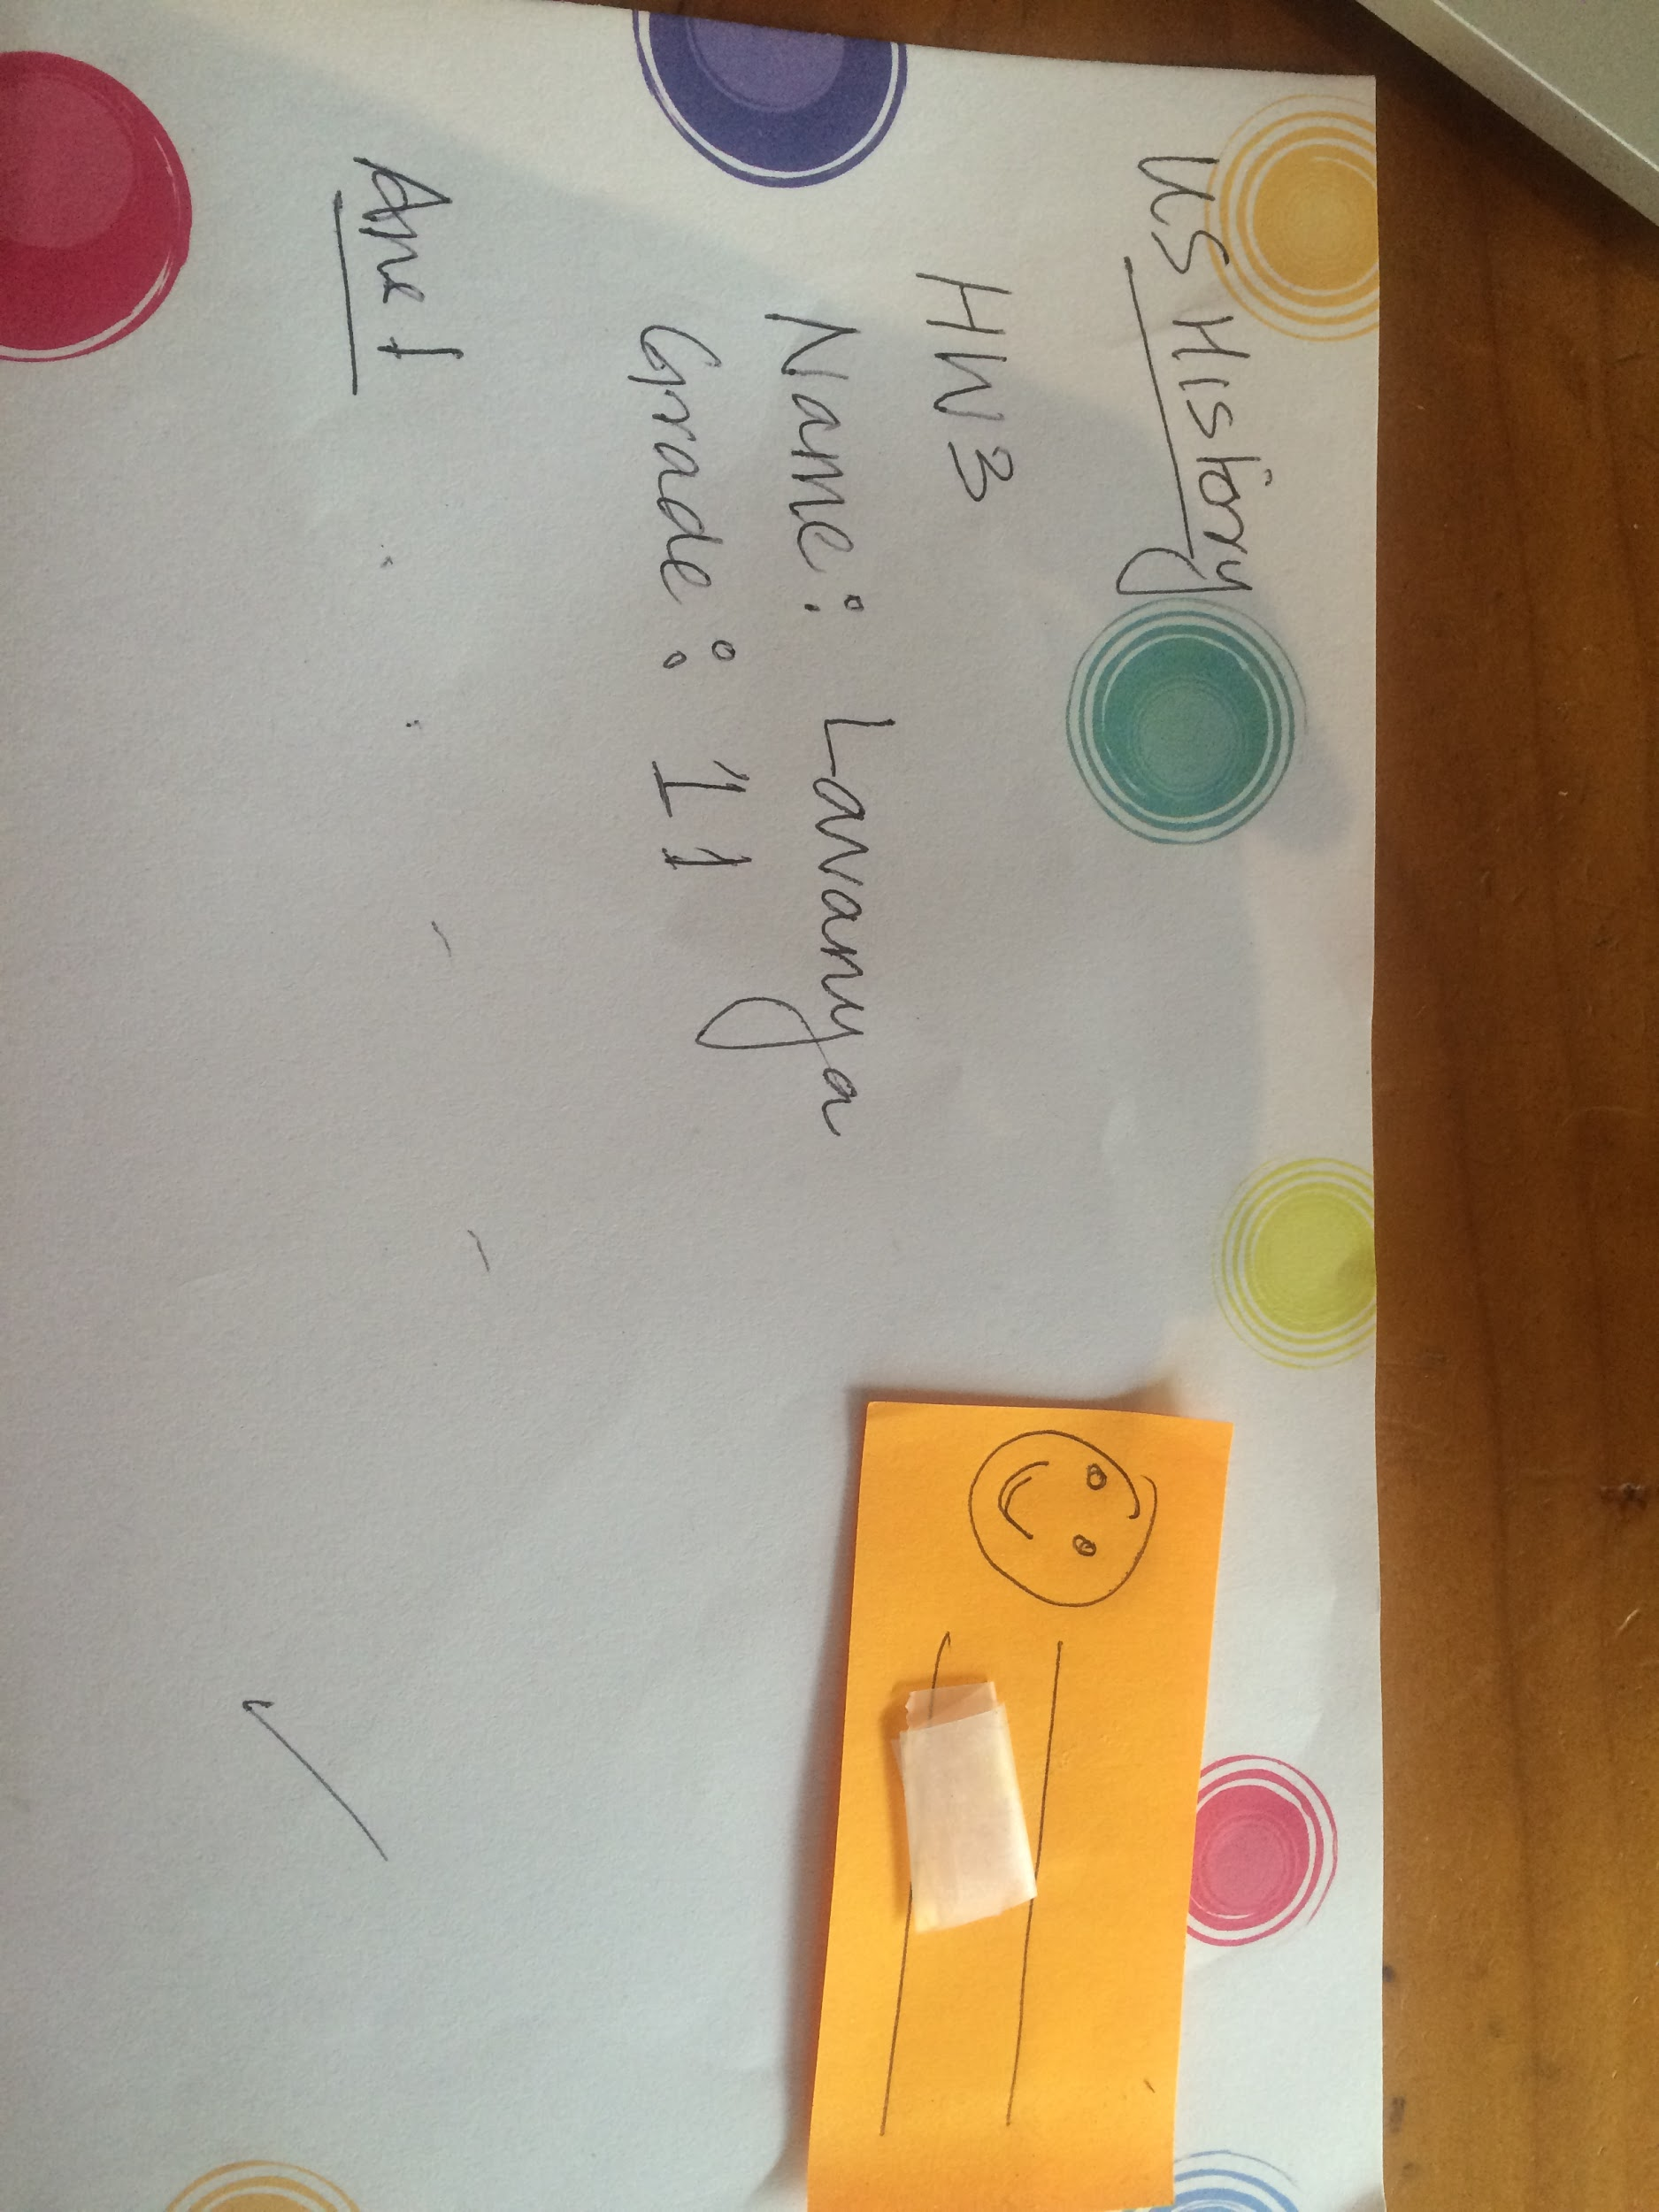 US History
HW3
Name: Lavanya
Grade: 11
Ans 1